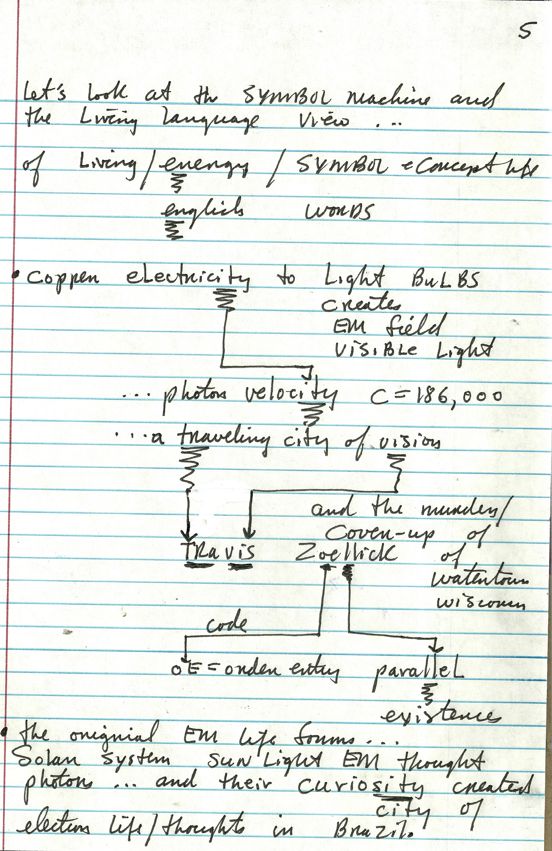 5
Let's look at the SYMBOL machine and
the Living language view ...
of Living / energy / SYMBOL + concept life
english WORDS
• copper electricity to Light BULBS
creates
EM field
VISIBLE Light
... photon velocity C = 186,000
... a traveling city of vision
and the murder/
cover-up of
TRAVIS Zoellick of
watertown
wisconsin
code
OE = order entry parallel
existence
• the original EM life forms...
Solar system sunlight EM thought
photons ... and their curiosity created
city of
electron life/thoughts in Brazil.